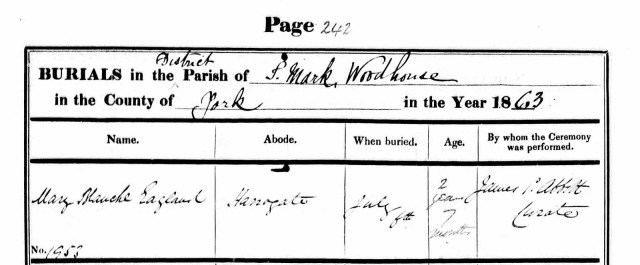 Page 242
District
BURIALS in the Parish of St. Mark, Woodhouse
in the County of York in the Year 1863
Name. Abode. When buried. Age. By whom the Ceremony was performed.
Mary Blanche England Harrogate July 6th 2 years 7 months James P. Abbott Curate
No. 1953